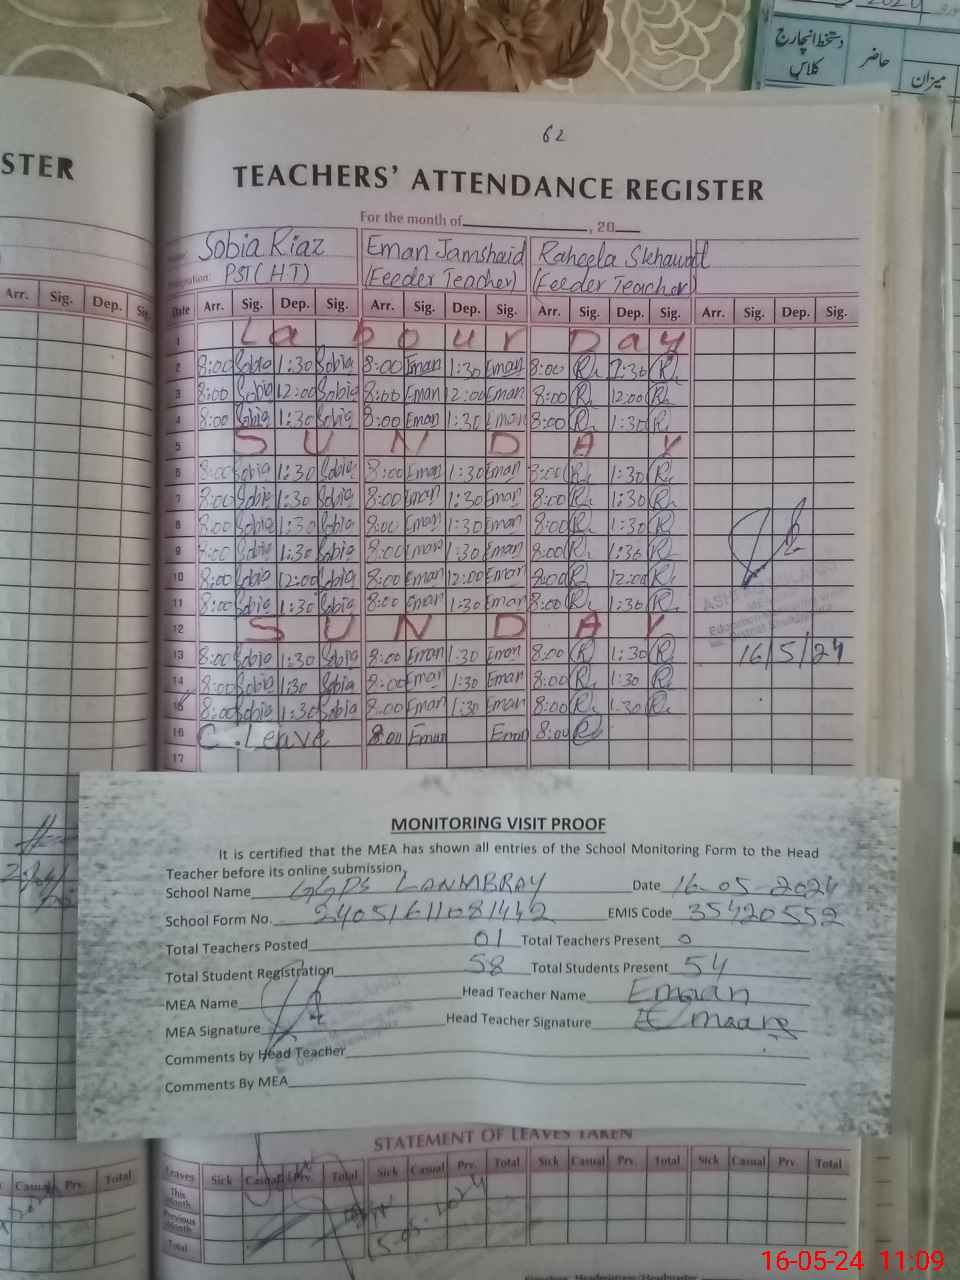 دستخط انچارج کلاس
حاضر
میزان
62
STER
TEACHERS' ATTENDANCE REGISTER
For the month of , 20
Sobia Riaz Eman Jamshaid Raheela Skhawat
PST(HT) (Feeder Teacher) (Feeder Teacher)
Arr. Sig. Dep. Sig.
Date Arr. Sig. Dep. Sig. Arr. Sig. Dep. Sig. Arr. Sig. Dep. Sig. Arr. Sig. Dep. Sig.
1 Labour Day
2 8:00 Sobia 1:30 Sobia 8:00 Eman 1:30 Eman 8:00 R 1:30 R
3 8:00 Sobia 12:00 Sobia 8:00 Eman 12:00 Eman 8:00 R 12:00 R
4 8:00 Sobia 1:30 Sobia 8:00 Eman 1:30 Eman 8:00 R 1:30 R
5 SUNDAY
6 8:00 Sobia 1:30 Sobia 8:00 Eman 1:30 Eman 8:00 R 1:30 R
7 8:00 Sobia 1:30 Sobia 8:00 Eman 1:30 Eman 8:00 R 1:30 R
8 8:00 Sobia 1:30 Sobia 8:00 Eman 1:30 Eman 8:00 R 1:30 R
9 8:00 Sobia 1:30 Sobia 8:00 Eman 1:30 Eman 8:00 R 1:30 R
10 8:00 Sobia 12:00 Sobia 8:00 Eman 12:00 Eman 8:00 R 12:00 R
11 8:00 Sobia 1:30 Sobia 8:00 Eman 1:30 Eman 8:00 R 1:30 R
12 SUNDAY
13 8:00 Sobia 1:30 Sobia 8:00 Eman 1:30 Eman 8:00 R 1:30 R 16/5/24
14 8:00 Sobia 1:30 Sobia 8:00 Eman 1:30 Eman 8:00 R 1:30 R
15 8:00 Sobia 1:30 Sobia 8:00 Eman 1:30 Eman 8:00 R 1:30 R
16 C. Leave 8:00 Eman Eman 8:00 R
17
MONITORING VISIT PROOF
It is certified that the MEA has shown all entries of the School Monitoring Form to the Head
Teacher before its online submission,
School Name GGPS LANMBRAY Date 16-05-2024
School Form No. 24051611081442 EMIS Code 35420552
Total Teachers Posted 01 Total Teachers Present 0
Total Student Registration 58 Total Students Present 54
MEA Name Head Teacher Name Emaan
MEA Signature Head Teacher Signature Emaan
Comments by Head Teacher
Comments By MEA
STATEMENT OF LEAVES TAKEN
Casual Prv. Total
Leaves Sick Casual Prv. Total Sick Casual Prv. Total Sick Casual Prv. Total Sick Casual Prv. Total
This Month
Previous Month
Total
16-05-24 11:09